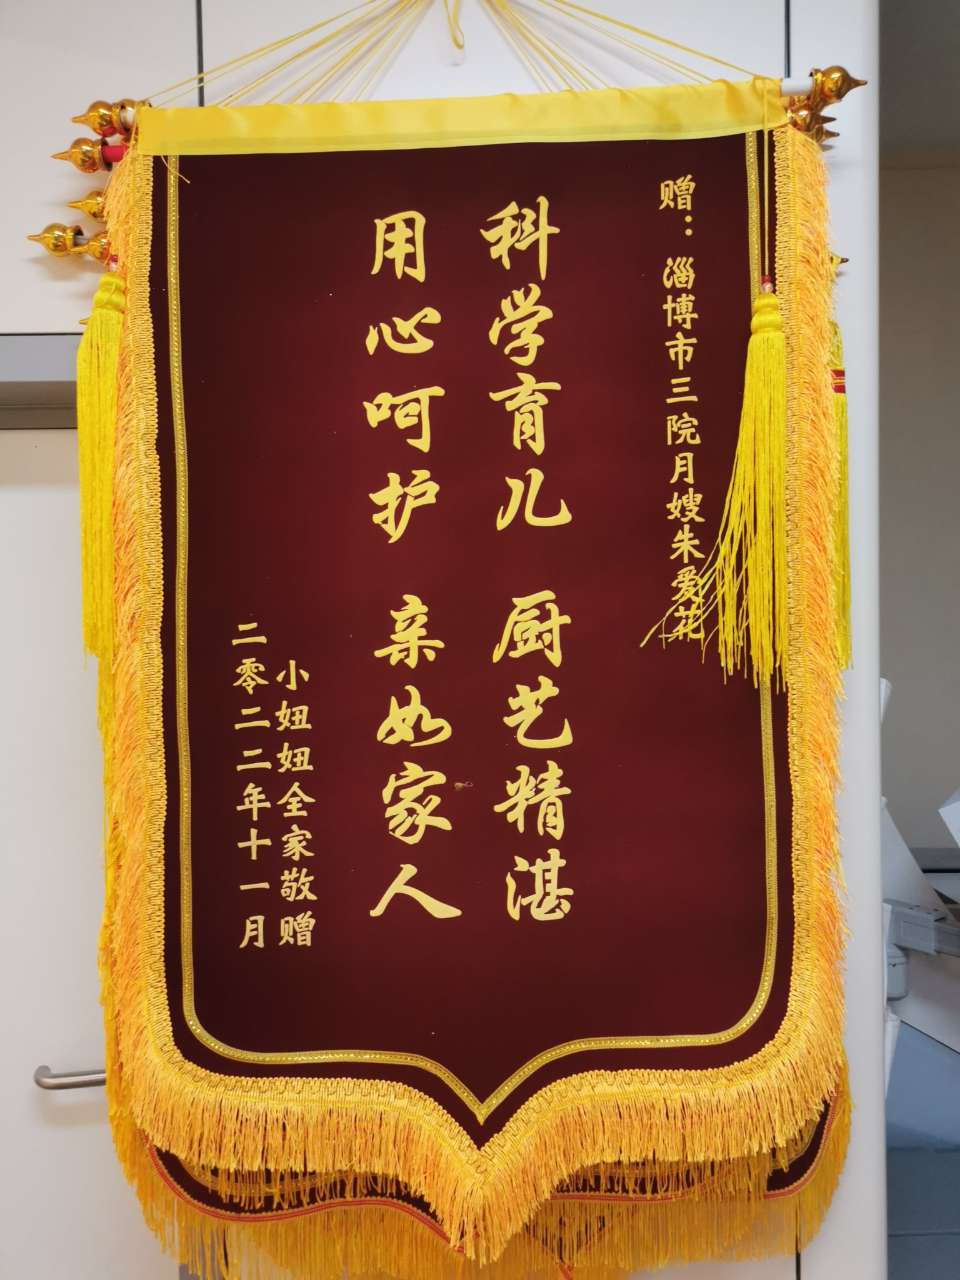 赠：淄博市三院月嫂朱爱花
科学育儿 厨艺精湛
用心呵护 亲如家人
小妞妞全家敬赠
二零二二年十一月